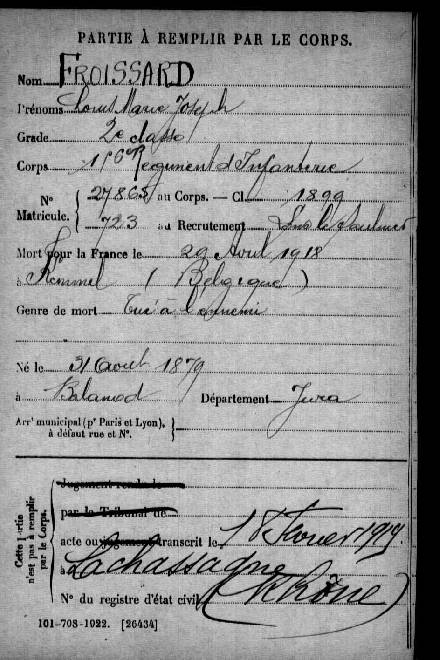 PARTIE À REMPLIR PAR LE CORPS.
Nom FROISSARD
Prénoms Louis Marie Joseph
Grade 2e classe
Corps Régiment d'Infanterie
Nº Matricule. 27865 au Corps. — Cl. 1899
723 au Recrutement Lons le Saulnier
Mort pour la France le 29 Avril 1918
à Kemmel (Belgique)
Genre de mort Tué à l'ennemi
Né le 31 Août 1879
à Département Jura
Arrt municipal (pr Paris et Lyon),
à défaut rue et Nº.
Cette partie
n'est pas à remplir
par le Corps.
Jugement rendu le
par le Tribunal de
acte ou jugement transcrit le 18 Février 1919
à Lachassagne
Nº du registre d'état civil (Rhône)
101-708-1922. [26434]